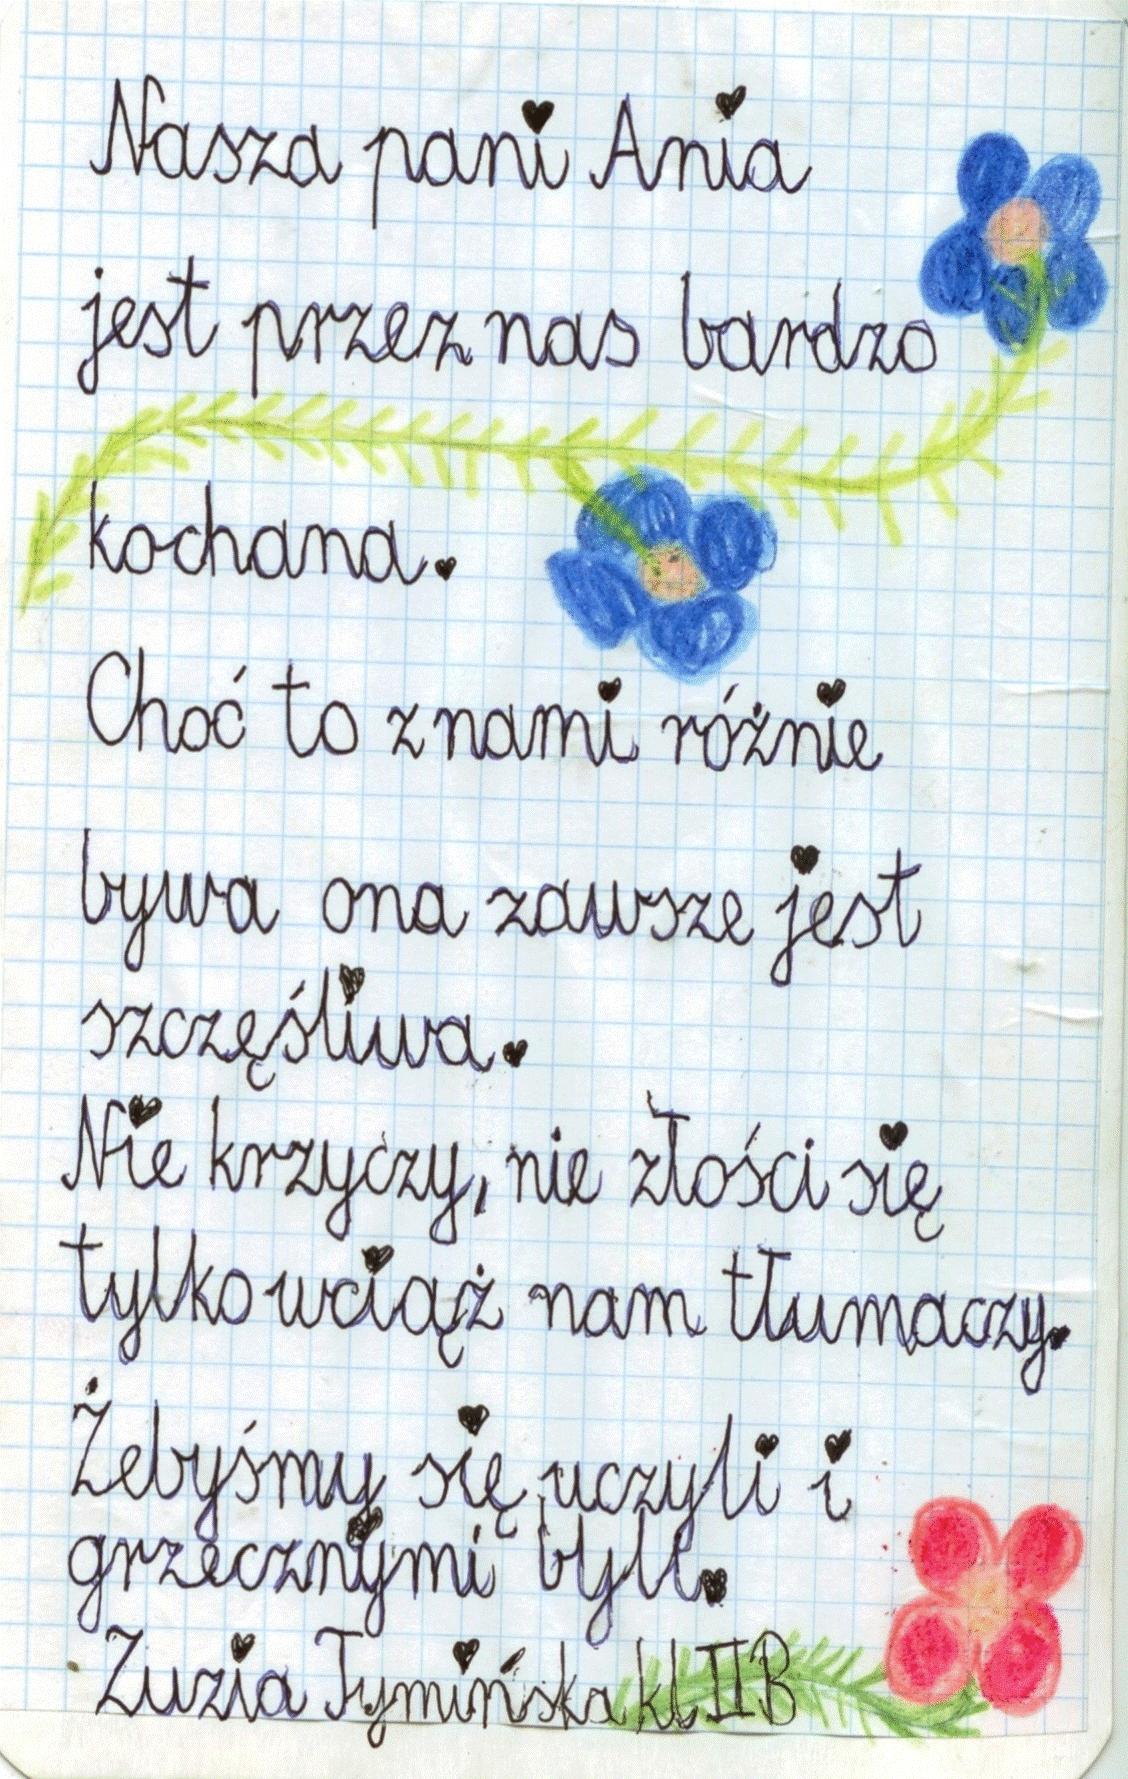 Nasza pani Ania
jest przez nas bardzo
kochana.
Choć to z nami różnie
bywa ona zawsze jest
szczęśliwa.
Nie krzyczy, nie złości się
tylko wciąż nam tłumaczy.
Żebyśmy się uczyli i
grzecznymi byli.
Zuzia Tymińska kl II B